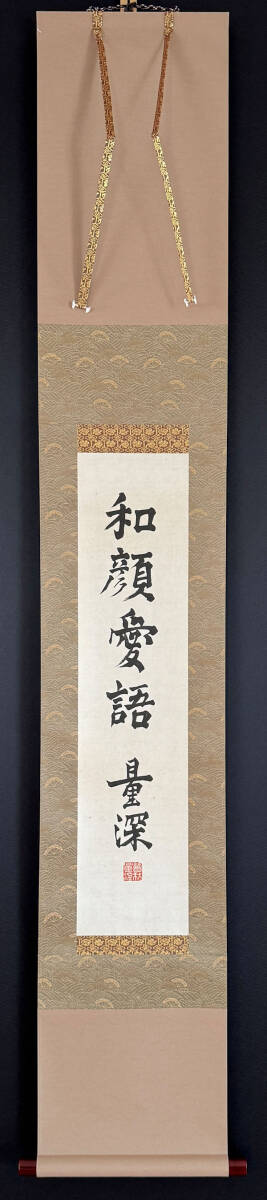 和顔愛語
量深